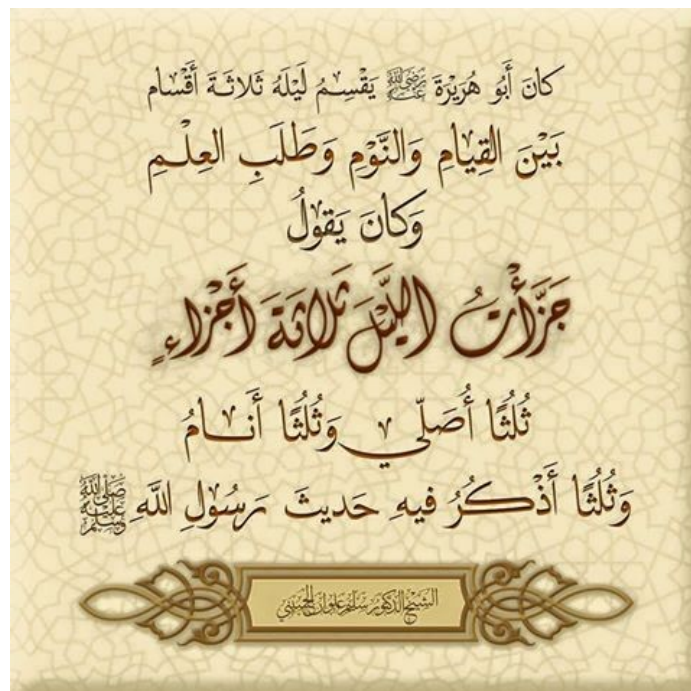 كانَ أَبُو هُرَيْرَةَ رَضِيَ اللهُ عَنْهُ يَقْسِمُ لَيْلَهُ ثَلاثَةَ أَقْسام
بَيْنَ القِيامِ وَالنَّوْمِ وَطَلَبِ العِلْمِ
وَكانَ يَقولُ
جَزَّأْتُ اللَّيْلَ ثَلاثَةَ أَجْزاءٍ
ثُلُثًا أُصَلّي وَثُلُثًا أَنامُ
وَثُلُثًا أَذْكُرُ فيهِ حَديثَ رَسُولِ اللَّهِ ﷺ
الشيخ الدكتور سليم علوان الحسيني